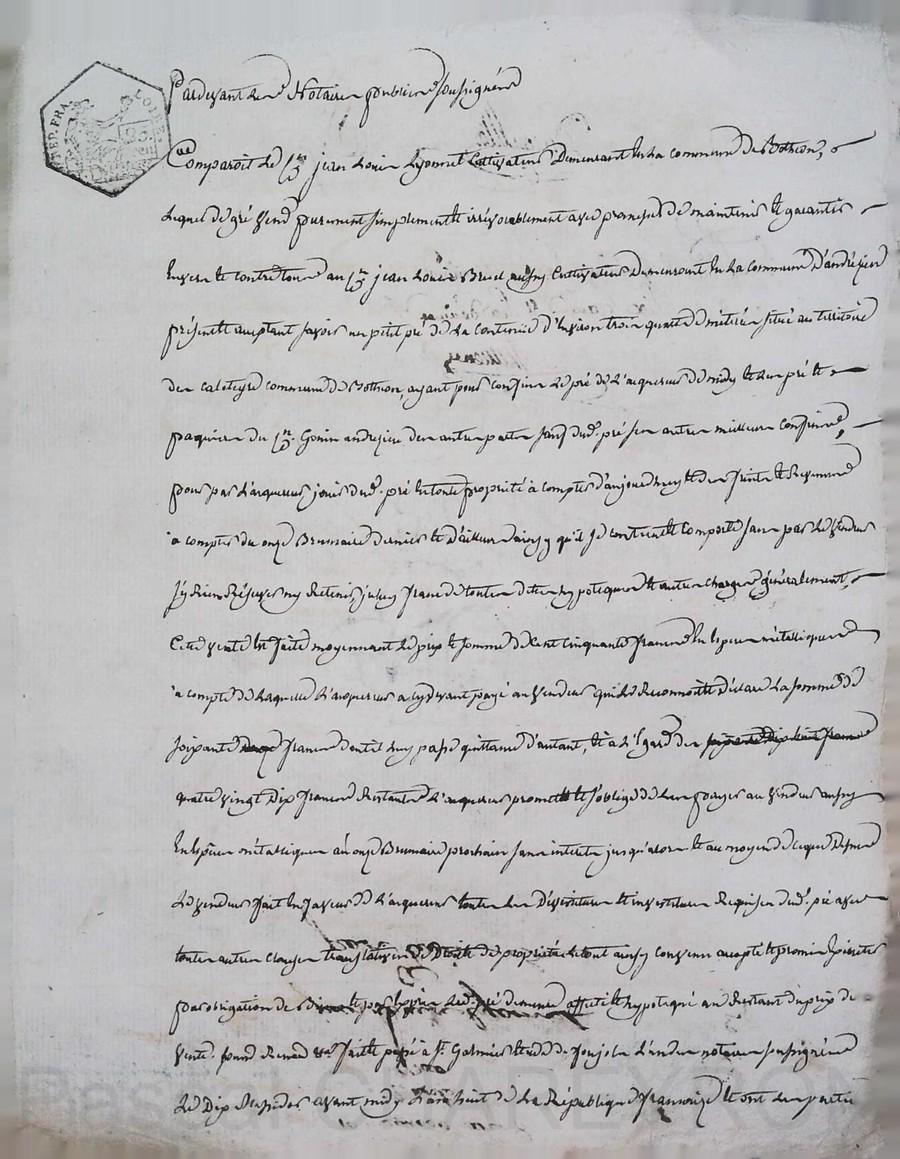 Pardevant le Notaire public soussigné
Comparoit le Sr jean Louis Lyonnet Cultivateur Demeurant en la commune de Bothéon,
lequel de gré vend purement simplement et irrévocablement avec promesse de maintenir et garantir
Envers et contre tous au Sr jean Louis Bruel aussy Cultivateur Demeurant en la Commune D'andrézieu
présent acceptant savoir un petit pré de la contenue d'Environ trois quart de métérée situé au territoire
des commune de Bothéon, ayant pour confins le pré de l'acquereur de midy et le pré et
paquier du Sr Gonin andrezieu des autres parts sauf dud. pré ses autres meilleurs confins,
pour par l'acquereur jouir dud. pré en toute propriété à compter d'aujourd'huy et des fruits et Revenus
a compter du onze Brumaire dernier et d'ailleurs ainsy qu'il se contient et comporte sans par le vendeur
s'y Rien Réserver ny Retenir, jusques franc de toutes dettes hypoteques et autres charges généralement,
Cette vente est faite moyennant le prix et somme de Cent cinquante francs En especes métalliques
a compte de laquelle l'acquereur a cy devant payé au vendeur qui le Reconnoit et déclare la somme de
soixante francs dont il luy passe quittance d'autant, et a l'Egard des
quatre vingt Dix francs Restants l'acquereur promet et s'oblige de les payer au vendeur aussy
En especes métalliques au onze Brumaire prochain sans interets jusqu'alors et au moyen de ce que dessus
Le vendeur fait En faveur de l'acquereur toutes les Dévestiture et investiture Requises dud. pré avec
toutes autres clauses translatives de Droits de propriété le tout ainsy convenu accepté et promis Exécuter
par obligation de Biens et par Exprès led. pré demeure affecté et hypotequé au Restant du prix de
vente. fait et passé à St. Galmier Etude de l'un des notaires soussigné
Le Dix Messidor avant midy l'an huit de la République française Et ont les parties